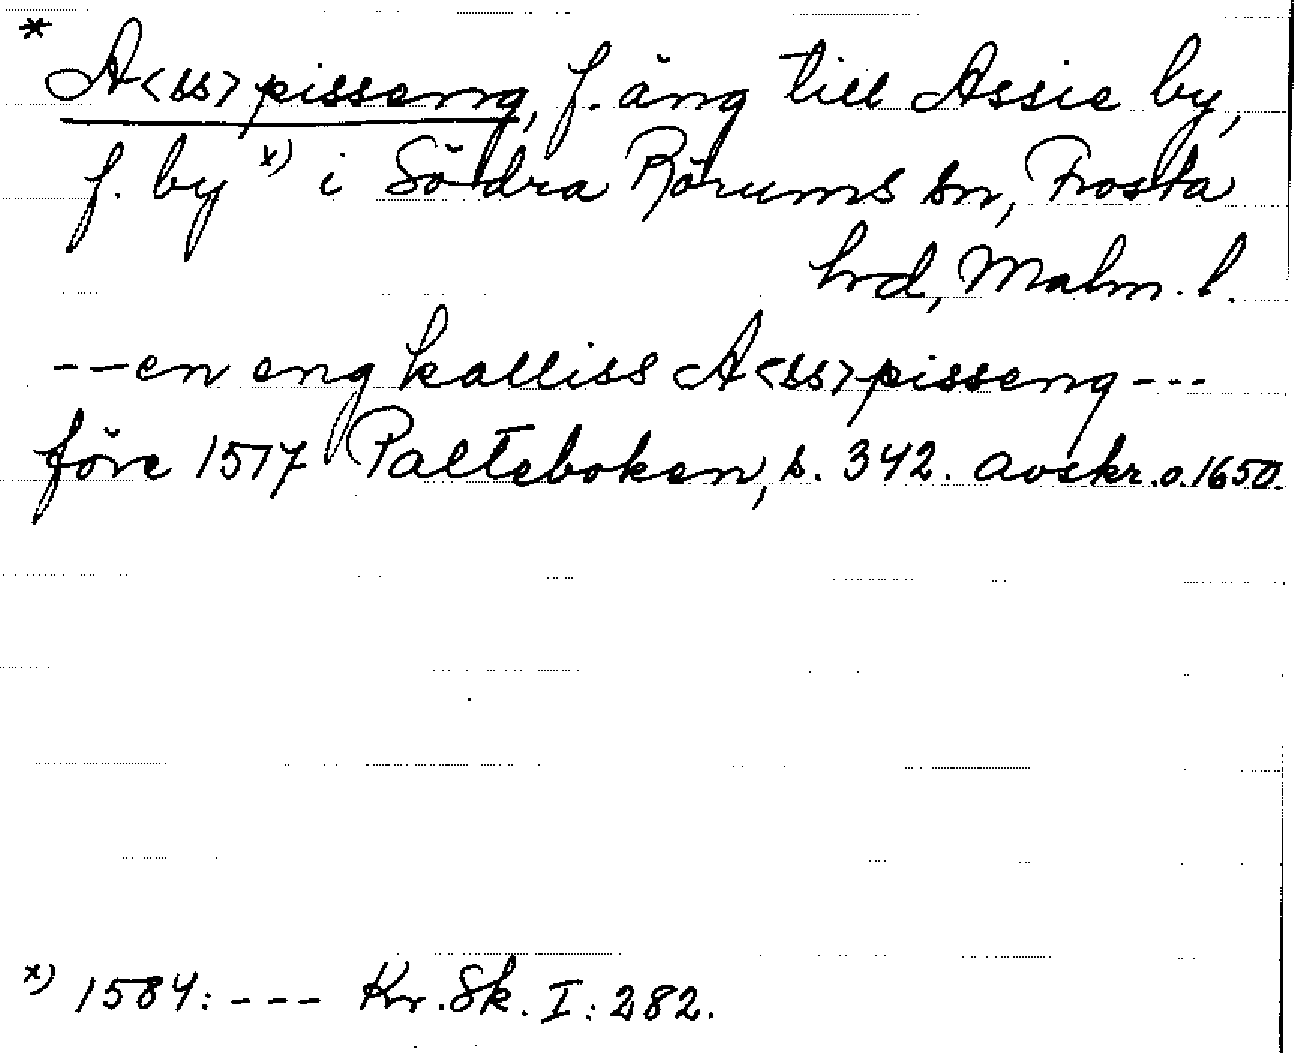 * A<ss>pisseng, f. äng till Assie by,
f. by x) i Södra Rörums sn, Frosta
hrd, Malm. l.
--en eng kalliss A<ss>pisseng---
före 1517 Palteboken, s. 342. avskr. o. 1650.
x) 1584: --- Kr. Sk. I: 282.